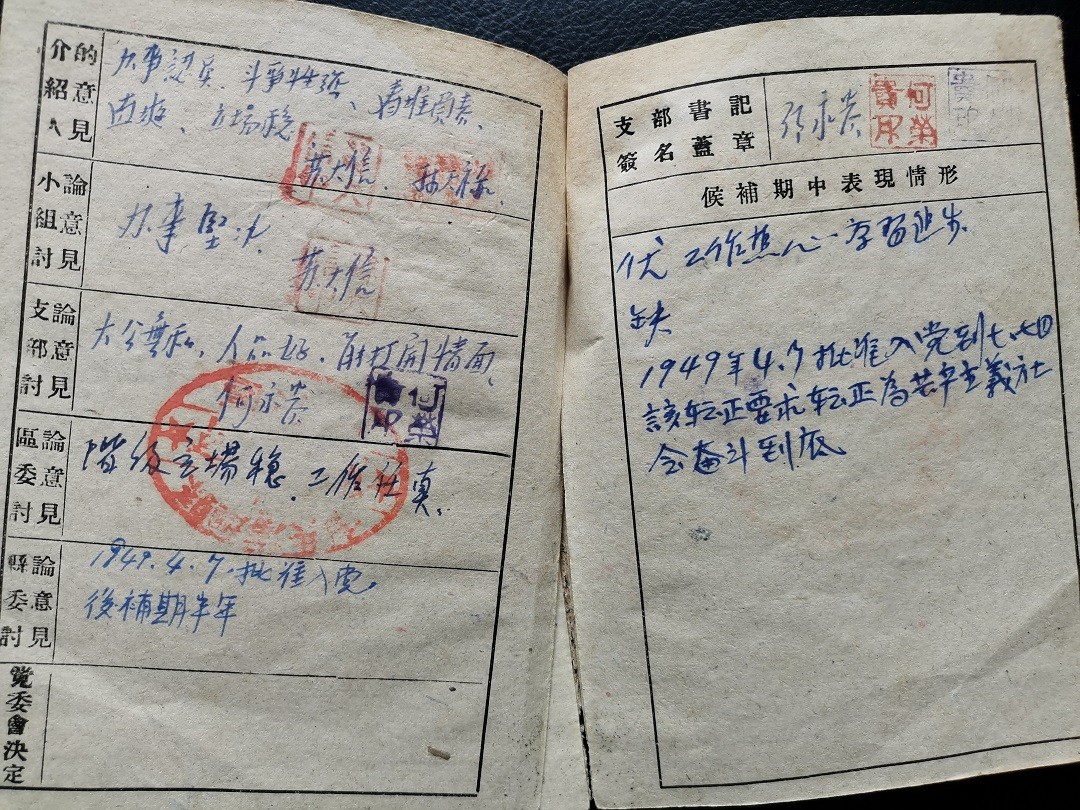 介紹人的意見
办事認真、斗爭性强、
直爽、立場稳
苏大信
小組討論意見
办事堅决
苏大信
支部討論意見
大公無私、人品好、
開情面、
何永
區委討論意見
階级立場稳、工作任真、
縣委討論意見
1949.4.7.批准入党
後補期半年
党委會决定
支部書記
簽名蓋章
何榮
候補期中表現情形
优 工作热心、学習进步
缺
1949年4.7批准入党到
該転正要求転正為共产主義社
会奋斗到底